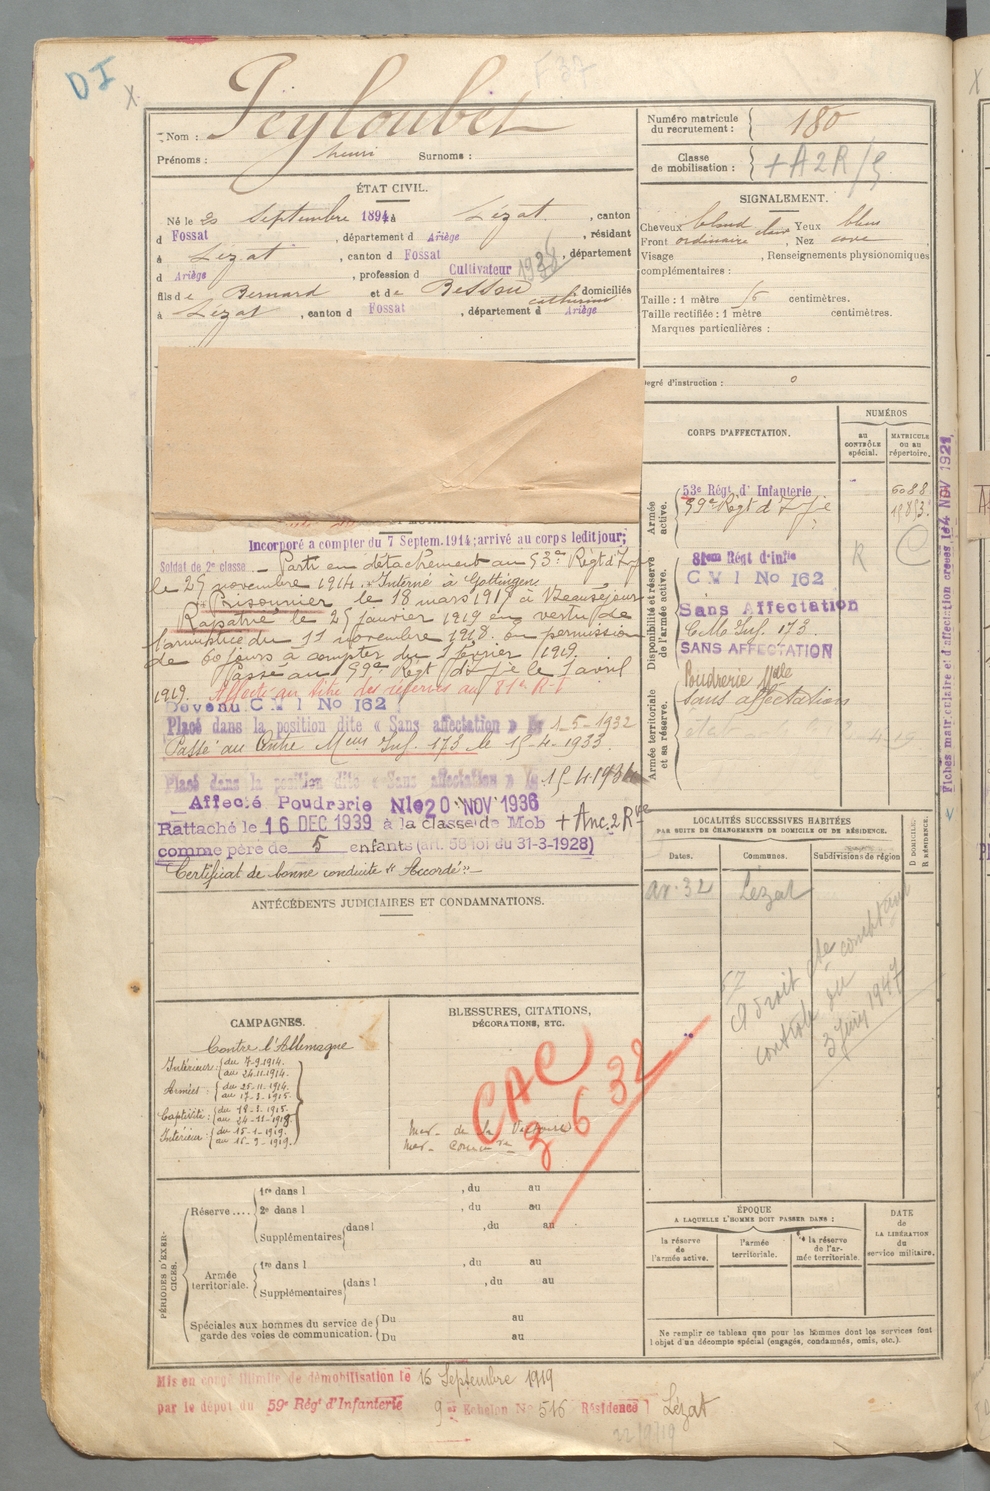 DI
X
Nom : Peyloubet
Prénoms : henri Surnoms :
Numéro matricule du recrutement : 180
Classe de mobilisation : + A 2 R/
ÉTAT CIVIL.
Né le 20 Septembre 1894 à Lézat , canton
d Fossat , département d Ariège , résidant
à Lézat , canton d Fossat , département
d Ariège , profession d Cultivateur
fils de Bernard et de Bessou catherine , domiciliés
à Lézat , canton d Fossat , département d Ariège
SIGNALEMENT.
Cheveux blond clair Yeux bleus
Front ordinaire , Nez cave
Visage , Renseignements physionomiques
complémentaires :
Taille : 1 mètre 56 centimètres.
Taille rectifiée : 1 mètre centimètres.
Marques particulières :
Degré d'instruction : 0
Incorporé à compter du 7 Septem. 1914; arrivé au corps ledit jour;
Soldat de 2e classe. Parti en détachement au 53e Régt d'Infie
le 25 novembre 1914. Interné à Gottingen
Prisonnier le 18 mars 1915 à Beauséjour
Rapatrié le 25 janvier 1919 en vertu de
l'armistice du 11 novembre 1918. en permission
de 60 jours à compter du 1 février 1919.
Passé au 99e Régt d'Infie le 1 avril
1919. Affecté au titre des réserves au 81e R.I
Devenu C M I No 162
Placé dans la position dite « Sans affectation » 1-5-1932
Passé au Centre Meur Inf. 173 le 15-4-1933
Placé dans la position dite « Sans affectation » 15-4-1934
Affecté Poudrerie Nle 20 NOV 1936
Rattaché le 16 DEC 1939 à la classe de Mob + Anc. 2 Rve
comme père de 5 enfants (art. 58 loi du 31-3-1928)
Certificat de bonne conduite « Accordé »
CORPS D'AFFECTATION.
NUMÉROS
au contrôle spécial.
MATRICULE ou au répertoire.
Armée active.
53e Régt d'Infanterie 6088
99e Régt d'Infie
Disponibilité et réserve de l'armée active.
81eme Régt d'infie
C M I No 162
Sans Affectation
C. Mo. Inf. 173.
SANS AFFECTATION
R
Armée territoriale et sa réserve.
Poudrerie Nlle
sans affectation
Fiches matriculaire et d'affectation créées le 4 NOV 1921.
LOCALITÉS SUCCESSIVES HABITÉES
PAR SUITE DE CHANGEMENTS DE DOMICILE OU DE RÉSIDENCE.
Dates. Communes. Subdivisions de région
D DOMICILE. R RÉSIDENCE.
av. 32 Lézat
A droit cte combattant
contrôle du
3 Juin 1947
ANTÉCÉDENTS JUDICIAIRES ET CONDAMNATIONS.
CAMPAGNES.
Contre l'Allemagne
Intérieur : du 7-9-1914. au 24-11-1914.
Armées : du 25-11-1914. au 17-3-1915.
Captivité : du 18-3-1915. au 24-11-1918.
Intérieur : du 15-1-1919. au 15-9-1919.
BLESSURES, CITATIONS,
DÉCORATIONS, ETC.
CAC
3 6 32
Med. de la Victoire
Med. Commve
PÉRIODES D'EXERCICES.
Réserve ....
1re dans l , du au
2e dans l , du au
Supplémentaires dans l , du au
Armée territoriale.
1re dans l , du au
Supplémentaires dans l , du au
Spéciales aux hommes du service de garde des voies de communication.
Du au
Du au
ÉPOQUE
A LAQUELLE L'HOMME DOIT PASSER DANS :
la réserve de l'armée active.
l'armée territoriale.
la réserve de l'armée territoriale.
DATE de LA LIBÉRATION du service militaire.
Ne remplir ce tableau que pour les hommes dont les services font
l'objet d'un décompte spécial (engagés, condamnés, omis, etc.).
Mis en congé illimité de démobilisation le 16 Septembre 1919
par le dépôt du 59e Rég' d'Infanterie 9e Echelon No 516 Résidence Lézat